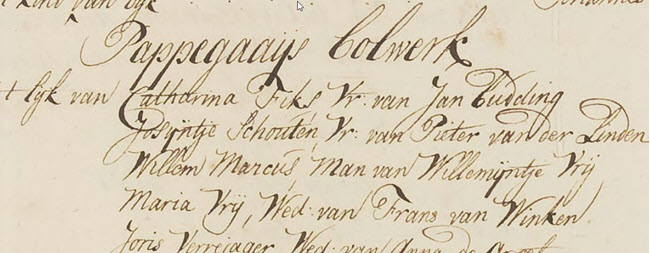 't kind van Eyk Johannes
Pappegaaijs bolwerk
't lijk van Catharina Fiks Vr: van Jan Cudding
Josijntje Schouten, Vr: van Pieter van der Linden
Willem Marcus, Man van Willemijntje Vrij
Maria Vrij, Wed: van Frans van Winken
Joris Verrejager Wed: van Anna de Groot